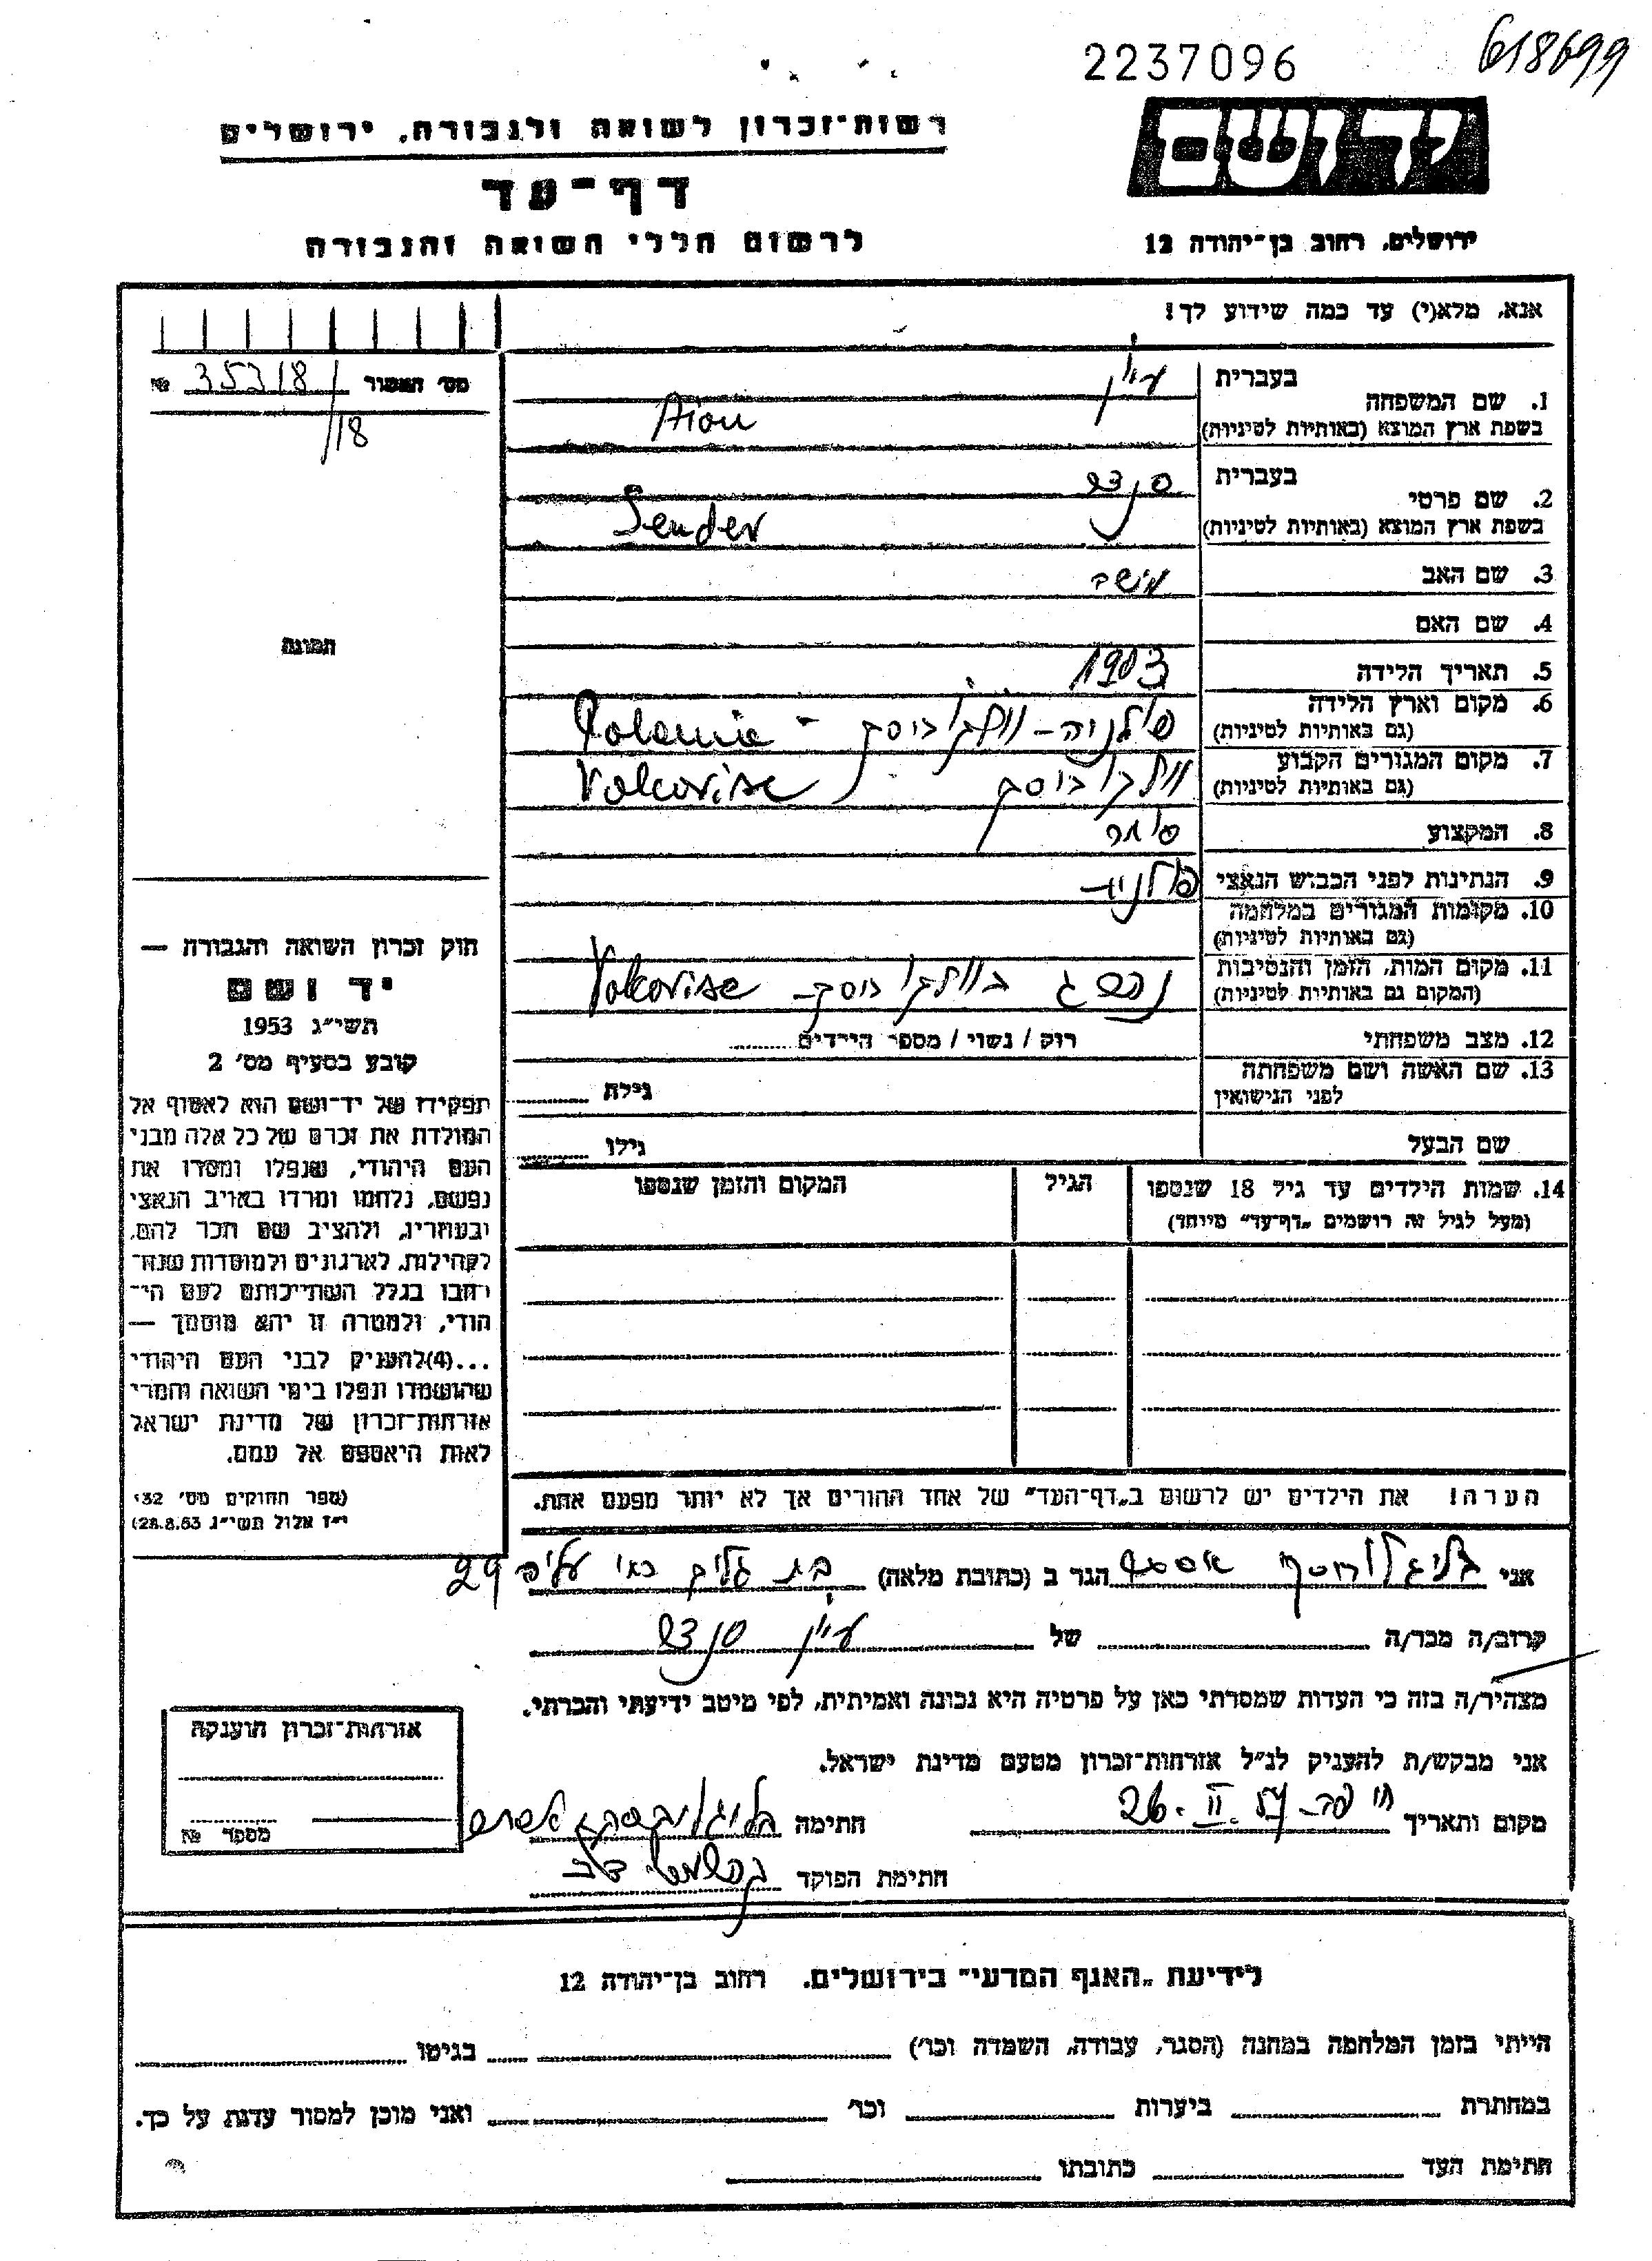 2237096
618699
רשות־זכרון לשואה ולגבורה, ירושלים
יד ושם
דף־עד
לרשום חללי השואה והגבורה
ירושלים, רחוב בן־יהודה 12
אנא, מלא(י) עד כמה שידוע לך!
מס׳ האמור № 35318/
/18
בעברית
1. שם המשפחה
בשפת ארץ המוצא (באותיות לטיניות)
Aion
בעברית סנדר
2. שם פרטי
בשפת ארץ המוצא (באותיות לטיניות)
Sender
3. שם האב
4. שם האם
תמונה
5. תאריך הלידה 1903
6. מקום וארץ הלידה פולניה – וולקוביסק – Polania
(גם באותיות לטיניות)
7. מקום המגורים הקבוע וולקוביסק Volcovisc
(גם באותיות לטיניות)
8. המקצוע סוחר
9. הנתינות לפני הכבוש הנאצי פולניה
10. מקומות המגורים במלחמה
(גם באותיות לטיניות)
11. מקום המות, הזמן והנסיבות נהרג בוולקוביסק – Volcovisc
(המקום גם באותיות לטיניות)
12. מצב משפחתי רווק / נשוי / מספר הילדים
13. שם האשה ושם משפחתה גילה
לפני הנישואין
שם הבעל גילו
14. שמות הילדים עד גיל 18 שנספו הגיל המקום והזמן שנספו
(מעל לגיל זה רושמים „דף־עד” מיוחד)
הערה! את הילדים יש לרשום ב„דף־העד” של אחד ההורים אך לא יותר מפעם אחת.
חוק זכרון השואה והגבורה —
יד ושם
תשי״ג 1953
קובע בסעיף מס׳ 2
תפקידו של יד־ושם הוא לאסוף אל
המולדת את זכרם של כל אלה מבני
העם היהודי, שנפלו ומסרו את
נפשם, נלחמו ומרדו באויב הנאצי
ובעוזריו, ולהציב שם וזכר להם,
לקהילות, לארגונים ולמוסדות שנח־
רבו בגלל השתייכותם לעם הי־
הודי, ולמטרה זו יהא מוסמך —
...(4)להעניק לבני העם היהודי
שהושמדו ונפלו בימי השואה והמרי
אזרחות־זכרון של מדינת ישראל
לאות היאספם אל עמם.
(ספר החוקים מס׳ 132
י״ז אלול תשי״ג 28.8.53)
אני הגר ב (כתובת מלאה) בת גלים 29
קרוב/ה מכר/ה של סנדר
מצהיר/ה בזה כי העדות שמסרתי כאן על פרטיה היא נכונה ואמיתית, לפי מיטב ידיעתי והכרתי.
אני מבקש/ת להעניק לנ״ל אזרחות־זכרון מטעם מדינת ישראל.
מקום ותאריך 26. II. חתימה
חתימת הפוקד
אזרחות־זכרון הוענקה
מספר №
לידיעת „האגף המדעי” בירושלים. רחוב בן־יהודה 12
הייתי בזמן המלחמה במחנה (הסגר, עבודה, השמדה וכו׳) בגיטו
במחתרת ביערות וכו׳ ואני מוכן למסור עדות על כך.
חתימת העד כתובתו